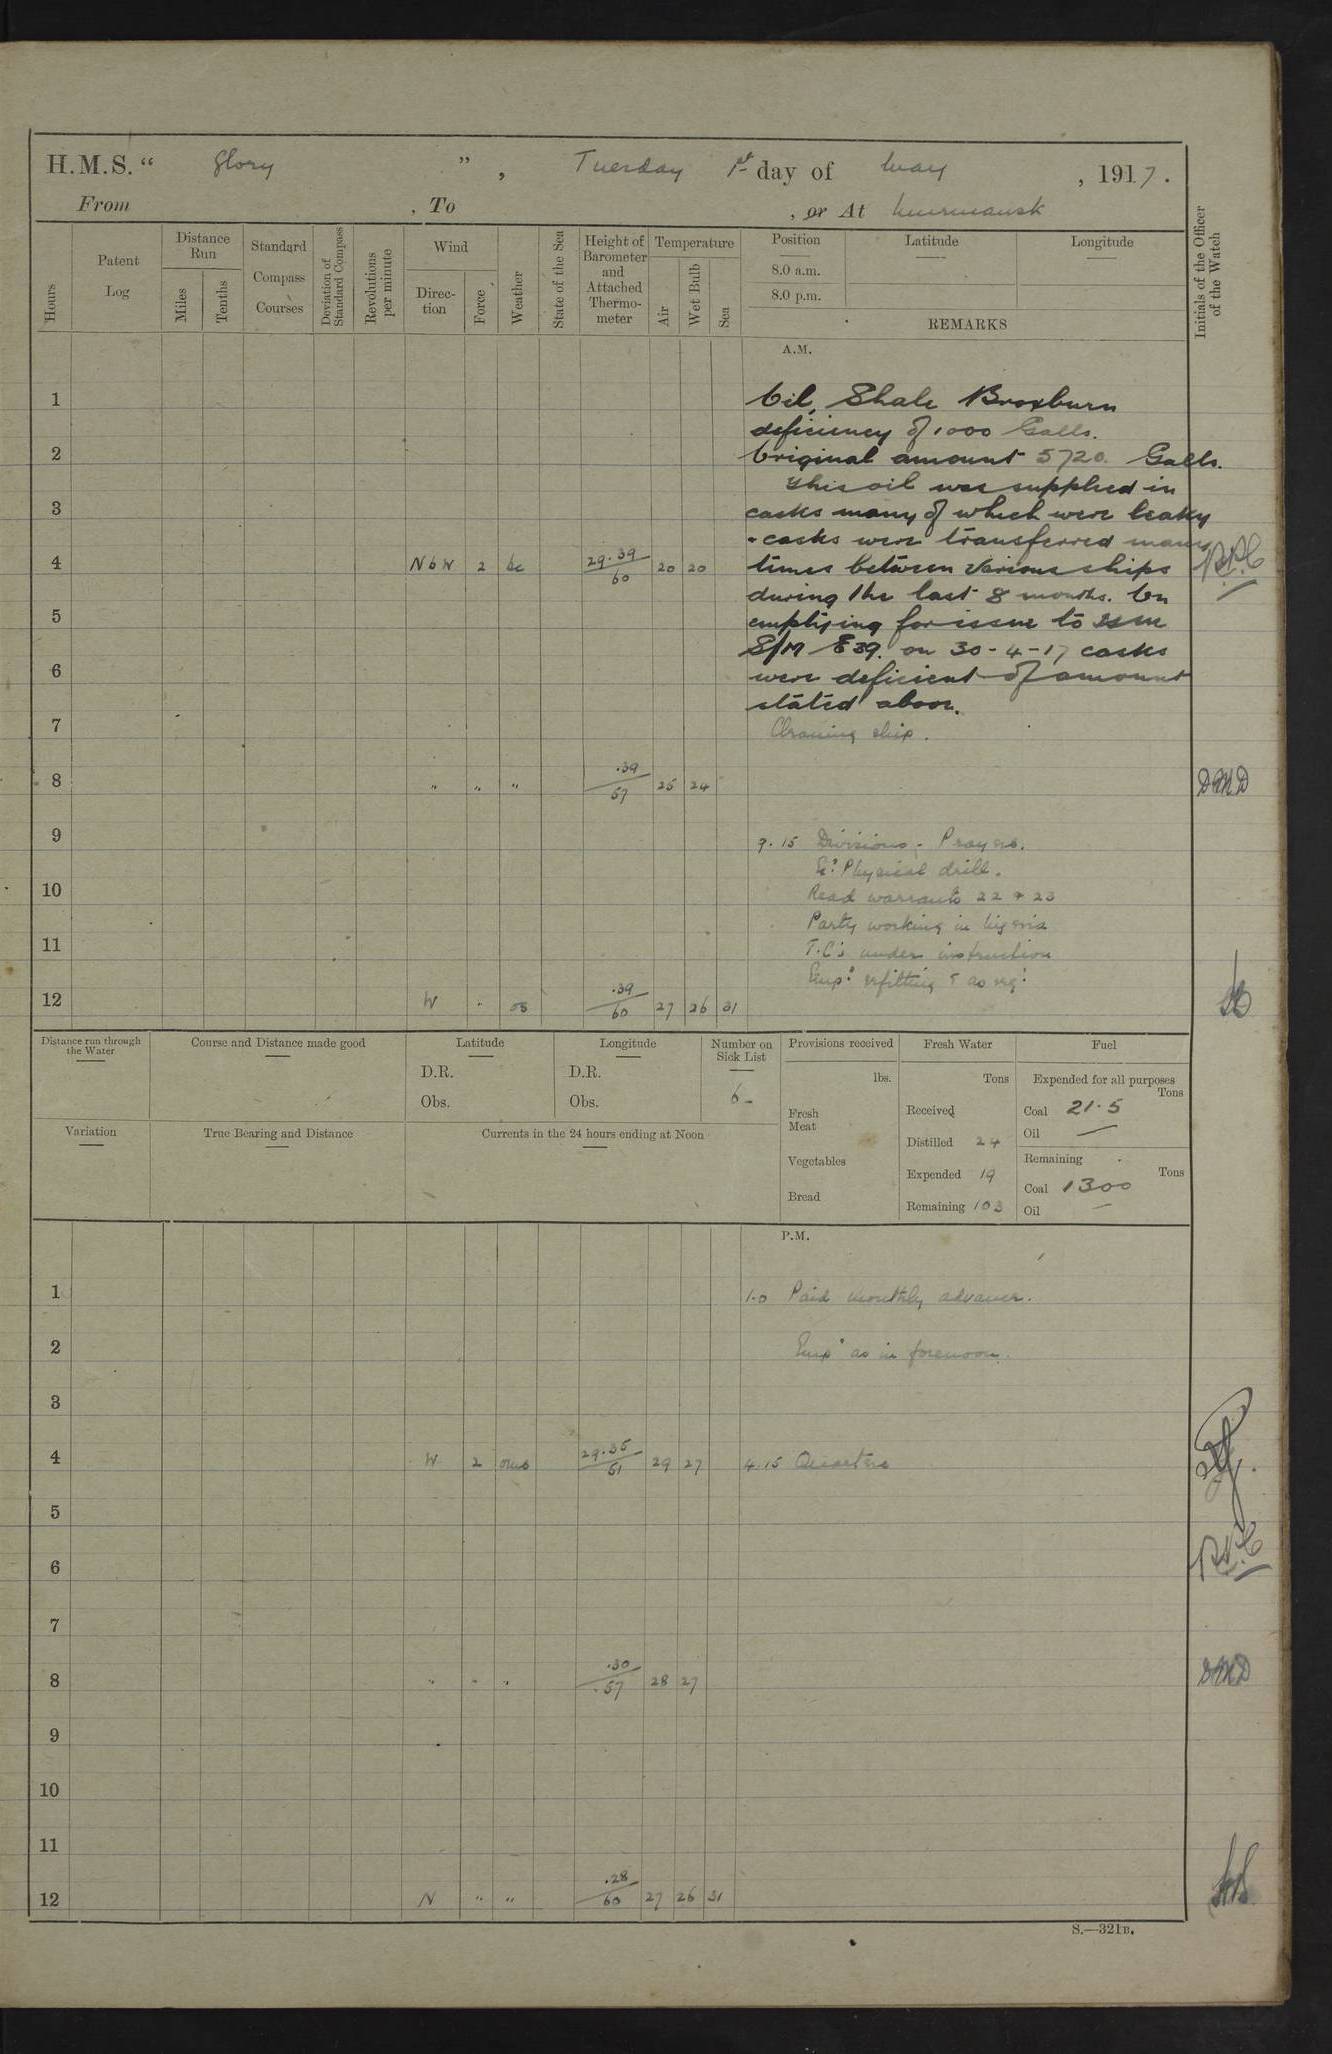 H.M.S. “ Glory ” , Tuesday 1st day of May , 1917.
From , To , or At Murmansk
Hours
Patent Log
Distance Run
Miles
Tenths
Standard Compass Courses
Deviation of Standard Compass
Revolutions per minute
Wind
Direction
Force
Weather
State of the Sea
Height of Barometer and Attached Thermometer
Temperature
Air
Wet Bulb
Sea
Position
8.0 a.m.
8.0 p.m.
Latitude
Longitude
REMARKS
Initials of the Officer of the Watch
A.M.
1 Oil, Shale Broxburn
deficiency of 1000 Galls.
2 Original amount 5720. Galls.
This oil was supplied in
3 casks many of which were leaky
- casks were transferred many
4 N b W 2 bc 29.39/60 20 20 times between various ships
during the last 8 months. On
5 emptying for issue to HM
S/M E39. on 30-4-17 casks
6 were deficient of amount
stated above.
7 Cleaning ship.
8 " " " .39/57 25 24 DMD
9 9.15 Divisions. Prayers.
Physical drill.
10 Read warrants 22 & 23
Party working in
11 T.C's under instruction
Emp: refitting & as req:
12 W " os .39/60 27 26 31
Distance run through the Water
Course and Distance made good
Latitude
D.R.
Obs.
Longitude
D.R.
Obs.
Number on Sick List
6-
Provisions received
lbs.
Fresh Meat
Vegetables
Bread
Fresh Water
Tons
Received
Distilled 24
Expended 19
Remaining 103
Fuel
Expended for all purposes
Tons
Coal 21.5
Oil —
Remaining
Tons
Coal 1300
Oil —
Variation
True Bearing and Distance
Currents in the 24 hours ending at Noon
P.M.
1 1.0 Paid monthly advance.
2 Emp: as in forenoon.
3
4 W 2 oms 29.35/61 29 27 4.15 Quarters
5
6
7
8 " " " .30/.57 28 27 DMD
9
10
11
12 N " " .28/60 27 26 31
S.—321B.